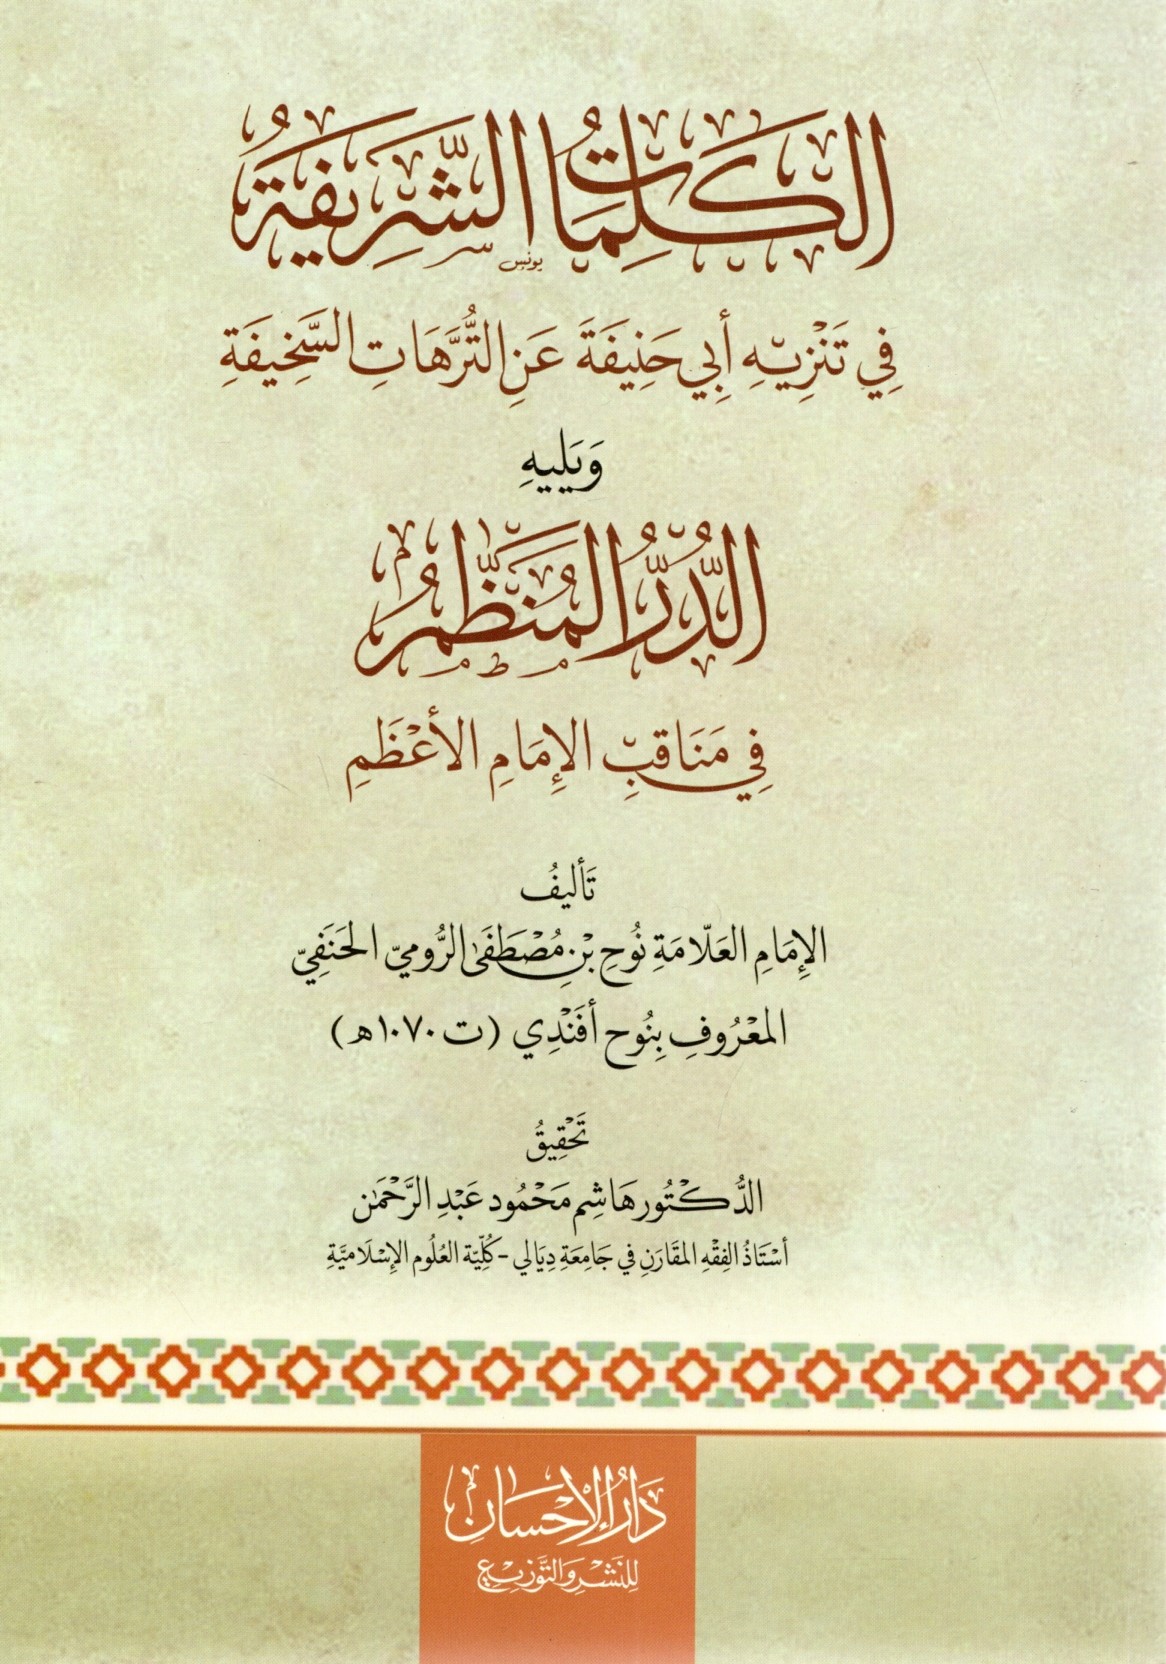 الكَلِمَاتُ الشَّرِيفَةُ
يونس
فِي تَنْزِيْهِ أَبِي حَنِيفَةَ عَنِ التُّرَّهَاتِ السَّخِيفَةِ
وَيَلِيهِ
الدُّرُّ المُنَظَّمُ
فِي مَنَاقِبِ الإِمَامِ الأَعْظَمِ
تَأليفُ
الإِمَامِ العَلّامَةِ نُوْحِ بْنِ مُصْطَفَى الرُّومِيّ الحَنَفِيّ
المَعْرُوفِ بِنُوح أَفَنْدِي (ت ١٠٧٠هـ)
تَحْقِيقُ
الدُّكْتُور هَاشِم مَحْمُود عَبْدِ الرَّحْمٰن
أسْتَاذُ الفِقْهِ المقَارَنِ في جَامَعَةِ دِيَالي - كُلِّيَّة العُلُوم الإِسْلَاميَّةِ
دَارُ الإِحْسَانِ
لِلنَّشْرِ وَالتَّوْزِيْعِ